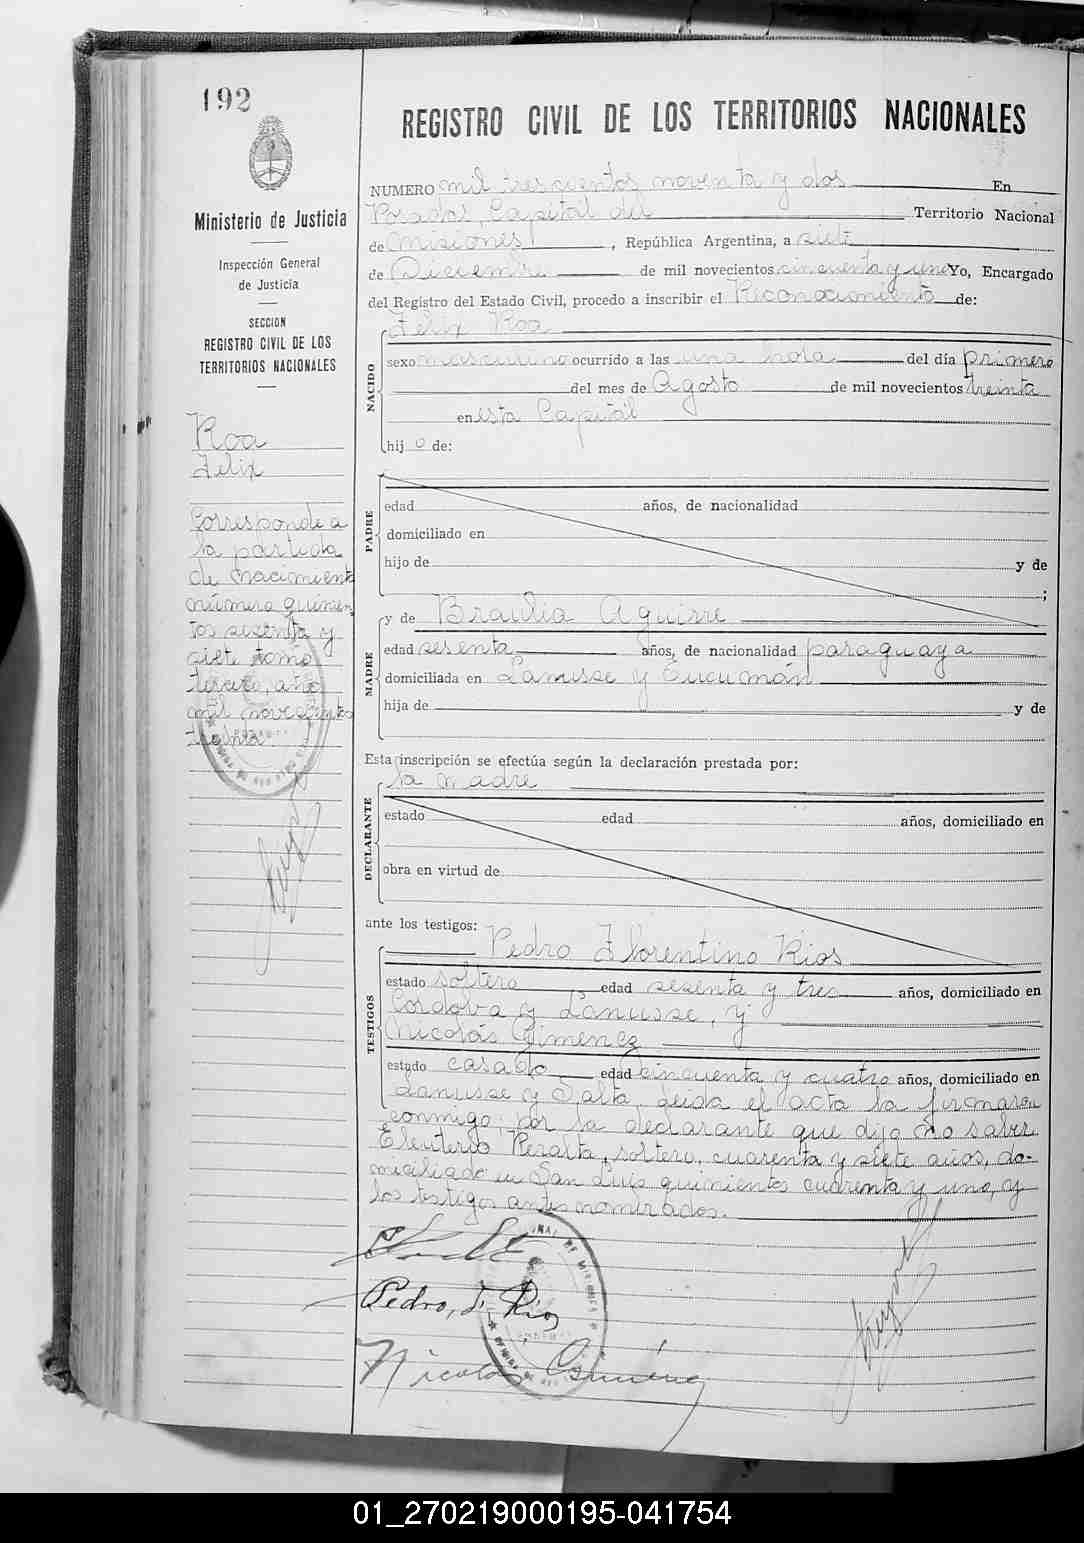 192
REGISTRO CIVIL DE LOS TERRITORIOS NACIONALES
Ministerio de Justicia
Inspección General
de Justicia
SECCION
REGISTRO CIVIL DE LOS
TERRITORIOS NACIONALES
Roa
Felix
Corresponde a
la partida
de nacimiento
número quinien
tos sesenta y
siete tomo
tercero, año
mil novecientos
treinta.
NUMERO mil trescientos noventa y dos En
Posadas, Capital del Territorio Nacional
de Misiones, República Argentina, a siete
de Diciembre de mil novecientos cincuenta y uno Yo, Encargado
del Registro del Estado Civil, procedo a inscribir el Reconocimiento de:
Felix Roa
NACIDO
sexo masculino ocurrido a las una hora del día primero
del mes de Agosto de mil novecientos treinta
en esta Capital
hijo de:
PADRE
edad años, de nacionalidad
domiciliado en
hijo de y de
;
MADRE
y de Braulia Aguirre
edad sesenta años, de nacionalidad paraguaya
domiciliada en Lanusse y Tucumán
hija de y de
Esta inscripción se efectúa según la declaración prestada por:
la madre
DECLARANTE
estado edad años, domiciliado en
obra en virtud de
ante los testigos:
Pedro Florentino Rios
TESTIGOS
estado soltero edad sesenta y tres años, domiciliado en
Cordova y Lanusse, y
Nicolás Gimenez
estado casado edad cincuenta y cuatro años, domiciliado en
Lanusse y Salta, leida el acta la firmaron
conmigo: por la declarante que dijo no saber
Eleuterio Peralta, soltero, cuarenta y siete años, do-
miciliado en San Luis quinientos cuarenta y uno, y
los testigos antes nombrados.
Pedro, F. Rios
Nicolas Gimenez
01_270219000195-041754